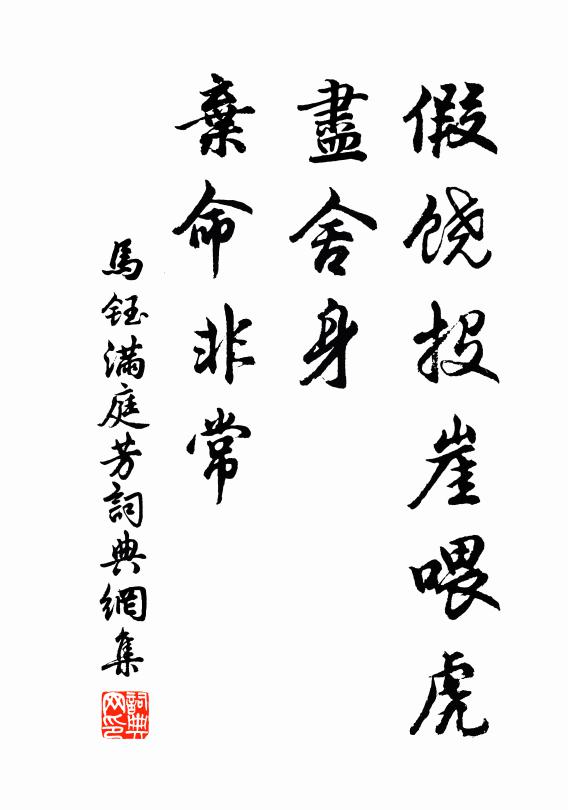 假饒投崖喂虎
盡舍身
棄命非常
馬鈺滿庭芳詞典網集
詞典网印